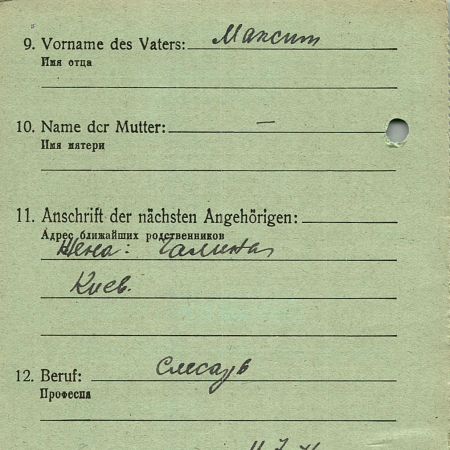 9. Vorname des Vaters: Максим
Имя отца
10. Name der Mutter: —
Имя матери
11. Anschrift der nächsten Angehörigen:
Адрес ближайших родственников
Жена: Галина
Киев.
12. Beruf: Слесарь
Професпа